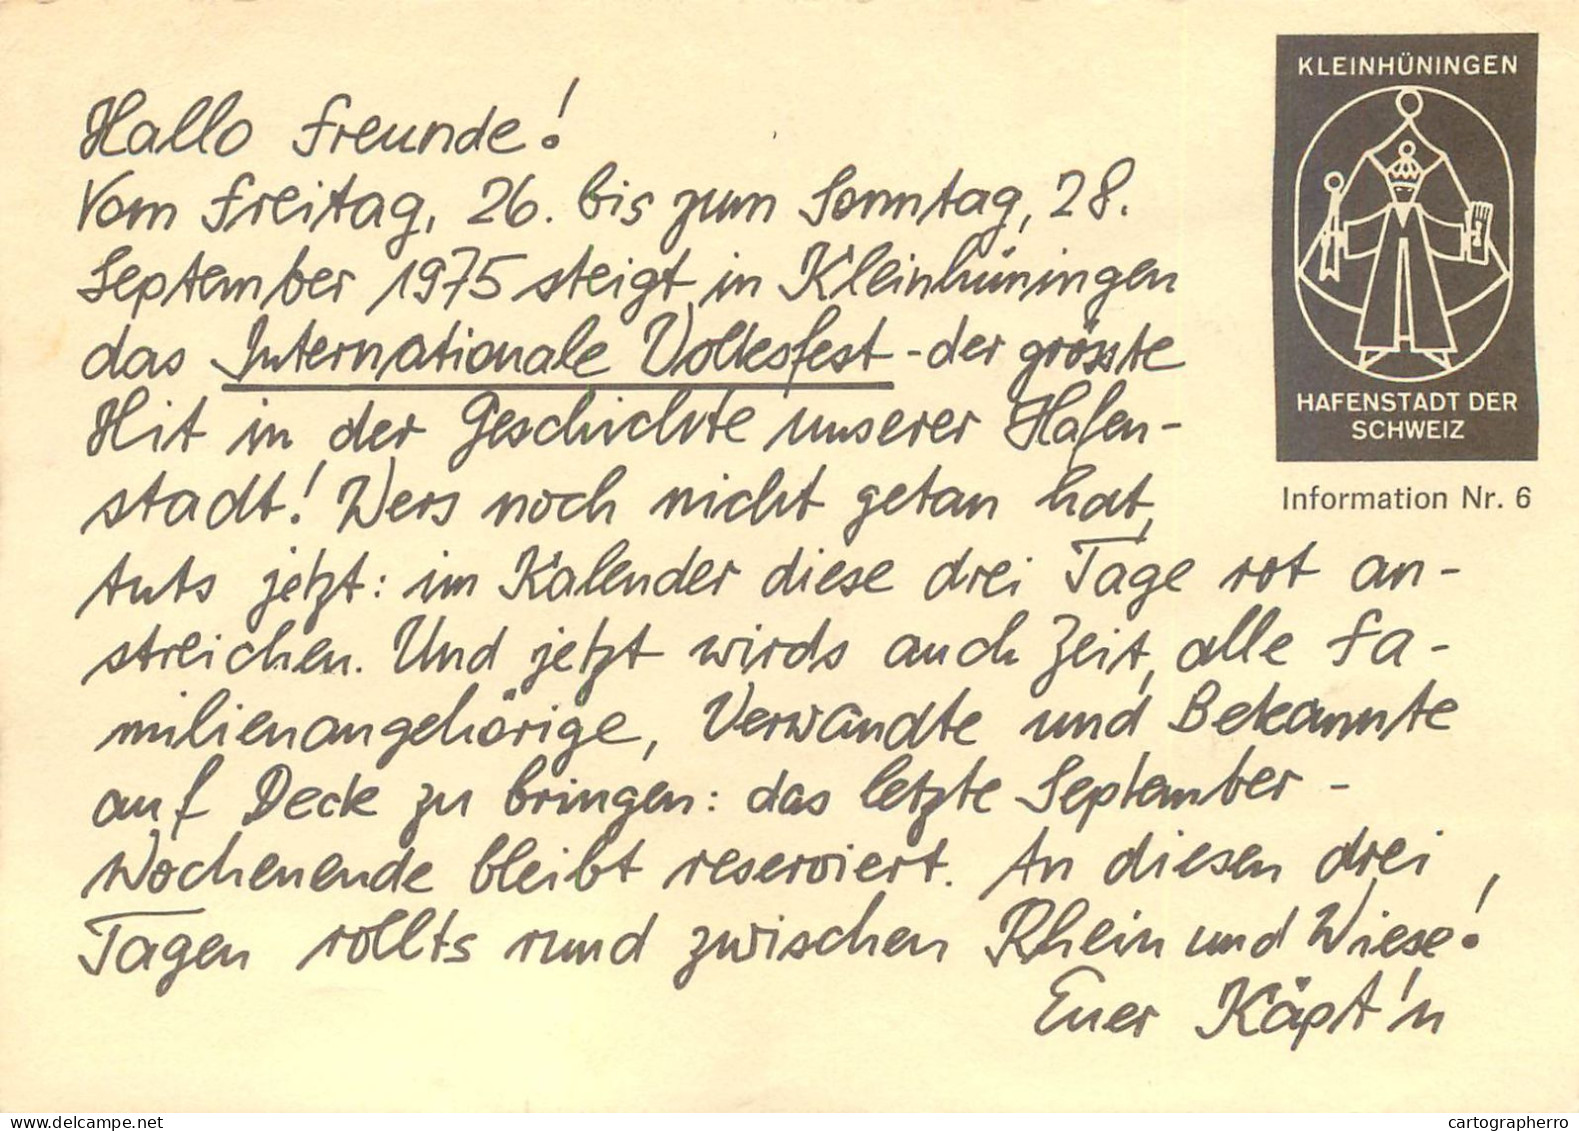 KLEINHÜNINGEN
Hallo Freunde!
Vom Freitag, 26. bis zum Sonntag, 28.
September 1975 steigt in Kleinhüningen
das Internationale Volksfest - der grösste
Hit in der Geschichte unserer Hafen-
stadt! Wers noch nicht getan hat,
tuts jetzt: im Kalender diese drei Tage rot an-
streichen. Und jetzt wirds auch Zeit, alle Fa-
milienangehörige, Verwandte und Bekannte
auf Deck zu bringen: das letzte September-
Wochenende bleibt reserviert. An diesen drei
Tagen rollts rund zwischen Rhein und Wiese!
Euer Käpt'n
HAFENSTADT DER
SCHWEIZ
Information Nr. 6
delcampe.net
cartographerro